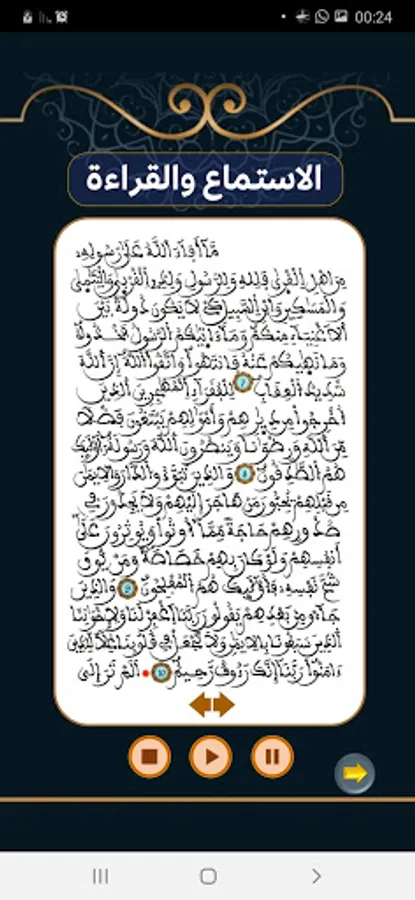 00:24
الاستماع والقراءة
مَّآ أَفَآءَ اَللَّهُ عَلَىٰ رَسُولِهِۦ
مِنَ اَهْلِ اِلْقُرَىٰ فَلِلهِ وَلِلرَّسُولِ وَلِذِے اِلْقُرْبَىٰ وَالْيَتَٰمَىٰ
وَالْمَسَٰكِينِ وَابْنِ اِلسَّبِيلِ كَےْ لَا يَكُونَ دُولَةَۢ بَيْنَ
اَلَاغْنِيَآءِ مِنكُمْ وَمَآ ءَاتَيٰكُمُ اُلرَّسُولُ فَخُذُوهُ
وَمَا نَهَيٰكُمْ عَنْهُ فَانتَهُواْ وَاتَّقُواْ اُللَّهَ إِنَّ اَللَّهَ
شَدِيدُ اُلْعِقَابِ 7 لِلْفُقَرَآءِ اِلْمُهَٰجِرِينَ اَلذِينَ
أُخْرِجُواْ مِن دِيٰرِهِمْ وَأَمْوَٰلِهِمْ يَبْتَغُونَ فَضْلاٗ
مِّنَ اَللَّهِ وَرِضْوَٰناٗ وَيَنصُرُونَ اَللَّهَ وَرَسُولَهُۥٓ أُوْلَٰٓئِكَ
هُمُ اُلصَّٰدِقُونَ 8 وَالذِينَ تَبَوَّءُو اُلدَّارَ وَالِايمَٰنَ
مِن قَبْلِهِمْ يُحِبُّونَ مَنْ هَاجَرَ إِلَيْهِمْ وَلَا يَجِدُونَ فِے
صُدُورِهِمْ حَاجَةٗ مِّمَّآ أُوتُواْ وَيُوثِرُونَ عَلَىٰٓ
أَنفُسِهِمْ وَلَوْ كَانَ بِهِمْ خَصَاصَةٞ وَمَنْ يُّوقَ
شُحَّ نَفْسِهِۦ فَأُوْلَٰٓئِكَ هُمُ اُلْمُفْلِحُونَ 9 وَالذِينَ
جَآءُو مِنۢ بَعْدِهِمْ يَقُولُونَ رَبَّنَا اَغْفِرْ لَنَا وَلِإِخْوَٰنِنَا
اَلذِينَ سَبَقُونَا بِالِايمَٰنِ وَلَا تَجْعَلْ فِے قُلُوبِنَا غِلّاٗ لِّلذِينَ
ءَامَنُواْ رَبَّنَآ إِنَّكَ رَءُوفٞ رَّحِيمٌ 10 اَلَمْ تَرَ إِلَى